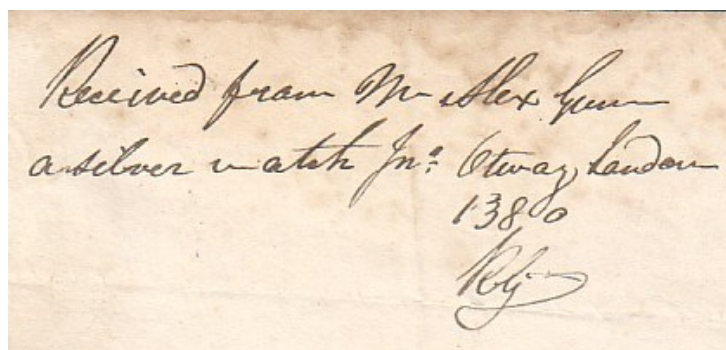 Received from Mr Alex Gunn
a silver watch Jnº: Otway London
1380